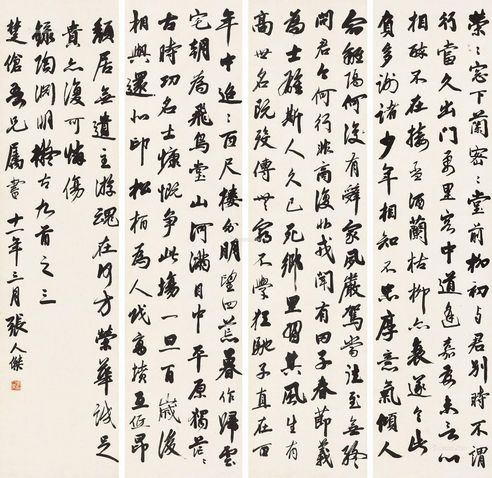 榮〻窓下蘭密〻堂前柳初與君別時不謂
行當久出門萬里客中道逢嘉友未言心
相醉不在接杯酒蘭枯柳亦衰遂令此
負多謝諸少年相知不忠厚意氣傾人
命離隔何復有辭家夙嚴駕當往至無終
問君今何行非商復非戎聞有田子春節義
為士雄斯人久已死鄉里習其風生有
高世名既歿傳無窮不學狂馳子直在百
年中迢〻百尺樓分明望四荒暮作歸雲
宅朝為飛鳥堂山河滿目中平原獨茫〻
古時功名士慷慨爭此場一旦百歲後
相與還北邙松柏為人伐高墳互低昂
頹基無遺主遊魂在何方榮華誠足
貴亦復可憐傷
錄陶淵明擬古九首之三
楚傖吾兄屬書 十一年三月張人傑